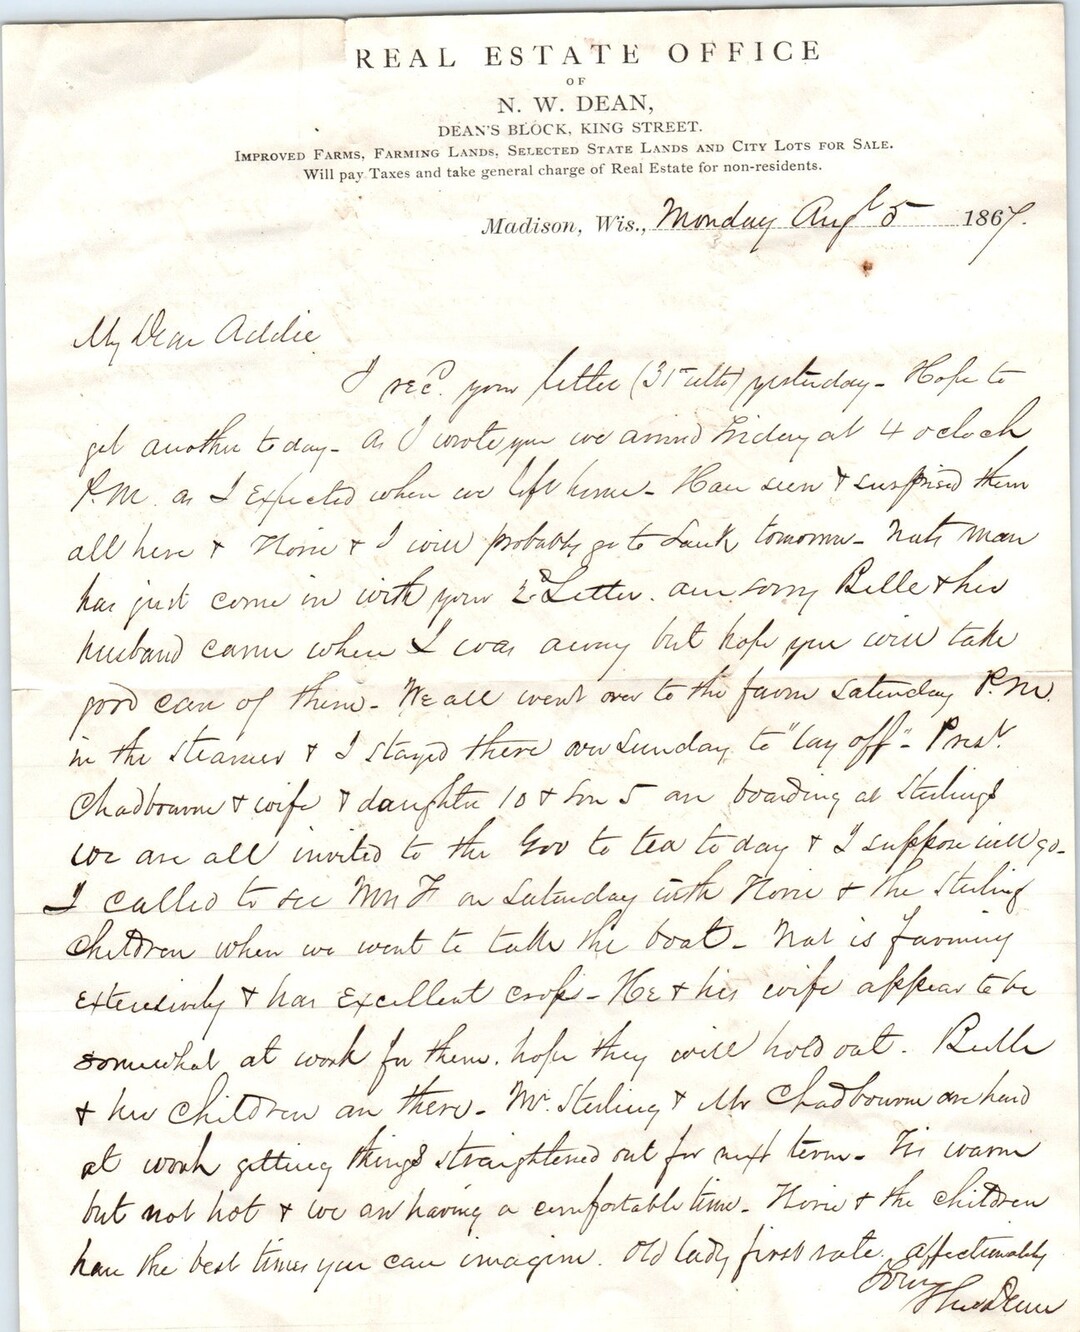 REAL ESTATE OFFICE
OF
N. W. DEAN,
DEAN'S BLOCK, KING STREET.
IMPROVED FARMS, FARMING LANDS, SELECTED STATE LANDS AND CITY LOTS FOR SALE.
Will pay Taxes and take general charge of Real Estate for non-residents.
Madison, Wis., Monday Augt 5 1867.
My Dear Addie
I recd. your letter (31st ulto) yesterday - Hope to
get another to day - As I wrote you we arrived Friday at 4 oclock
P.M. as I Expected when we left home - Have seen & surprised them
all here & & I will probably go to Sauk tomorrow - Nats man
has just come in with your 2d Letter. am sorry Belle & her
husband came when I was away but hope you will take
good care of them - We all went over to the farm Saturday P.M.
in the Steamer & I stayed there over Sunday to "lay off" - Prest.
Chadbourne & wife & daughter 10 & Son 5 are boarding at Sterlings
We are all invited to the Gov to tea to day & I suppose will go -
I called to see F on Saturday with & the Sterling
Children when we went to take the boat - Nat is farming
Extensively & has Excellent crops - He & his wife appear to be
somewhat at work for them. hope they will hold out. Belle
& her Children are there - Mr. Sterling & Mr Chadbourne are hard
at work getting things straightened out for next term - Tis warm
but not hot & we are having a comfortable time - & the children
have the best times you can imagine. Old lady first rate. affectionately
Your
Dean